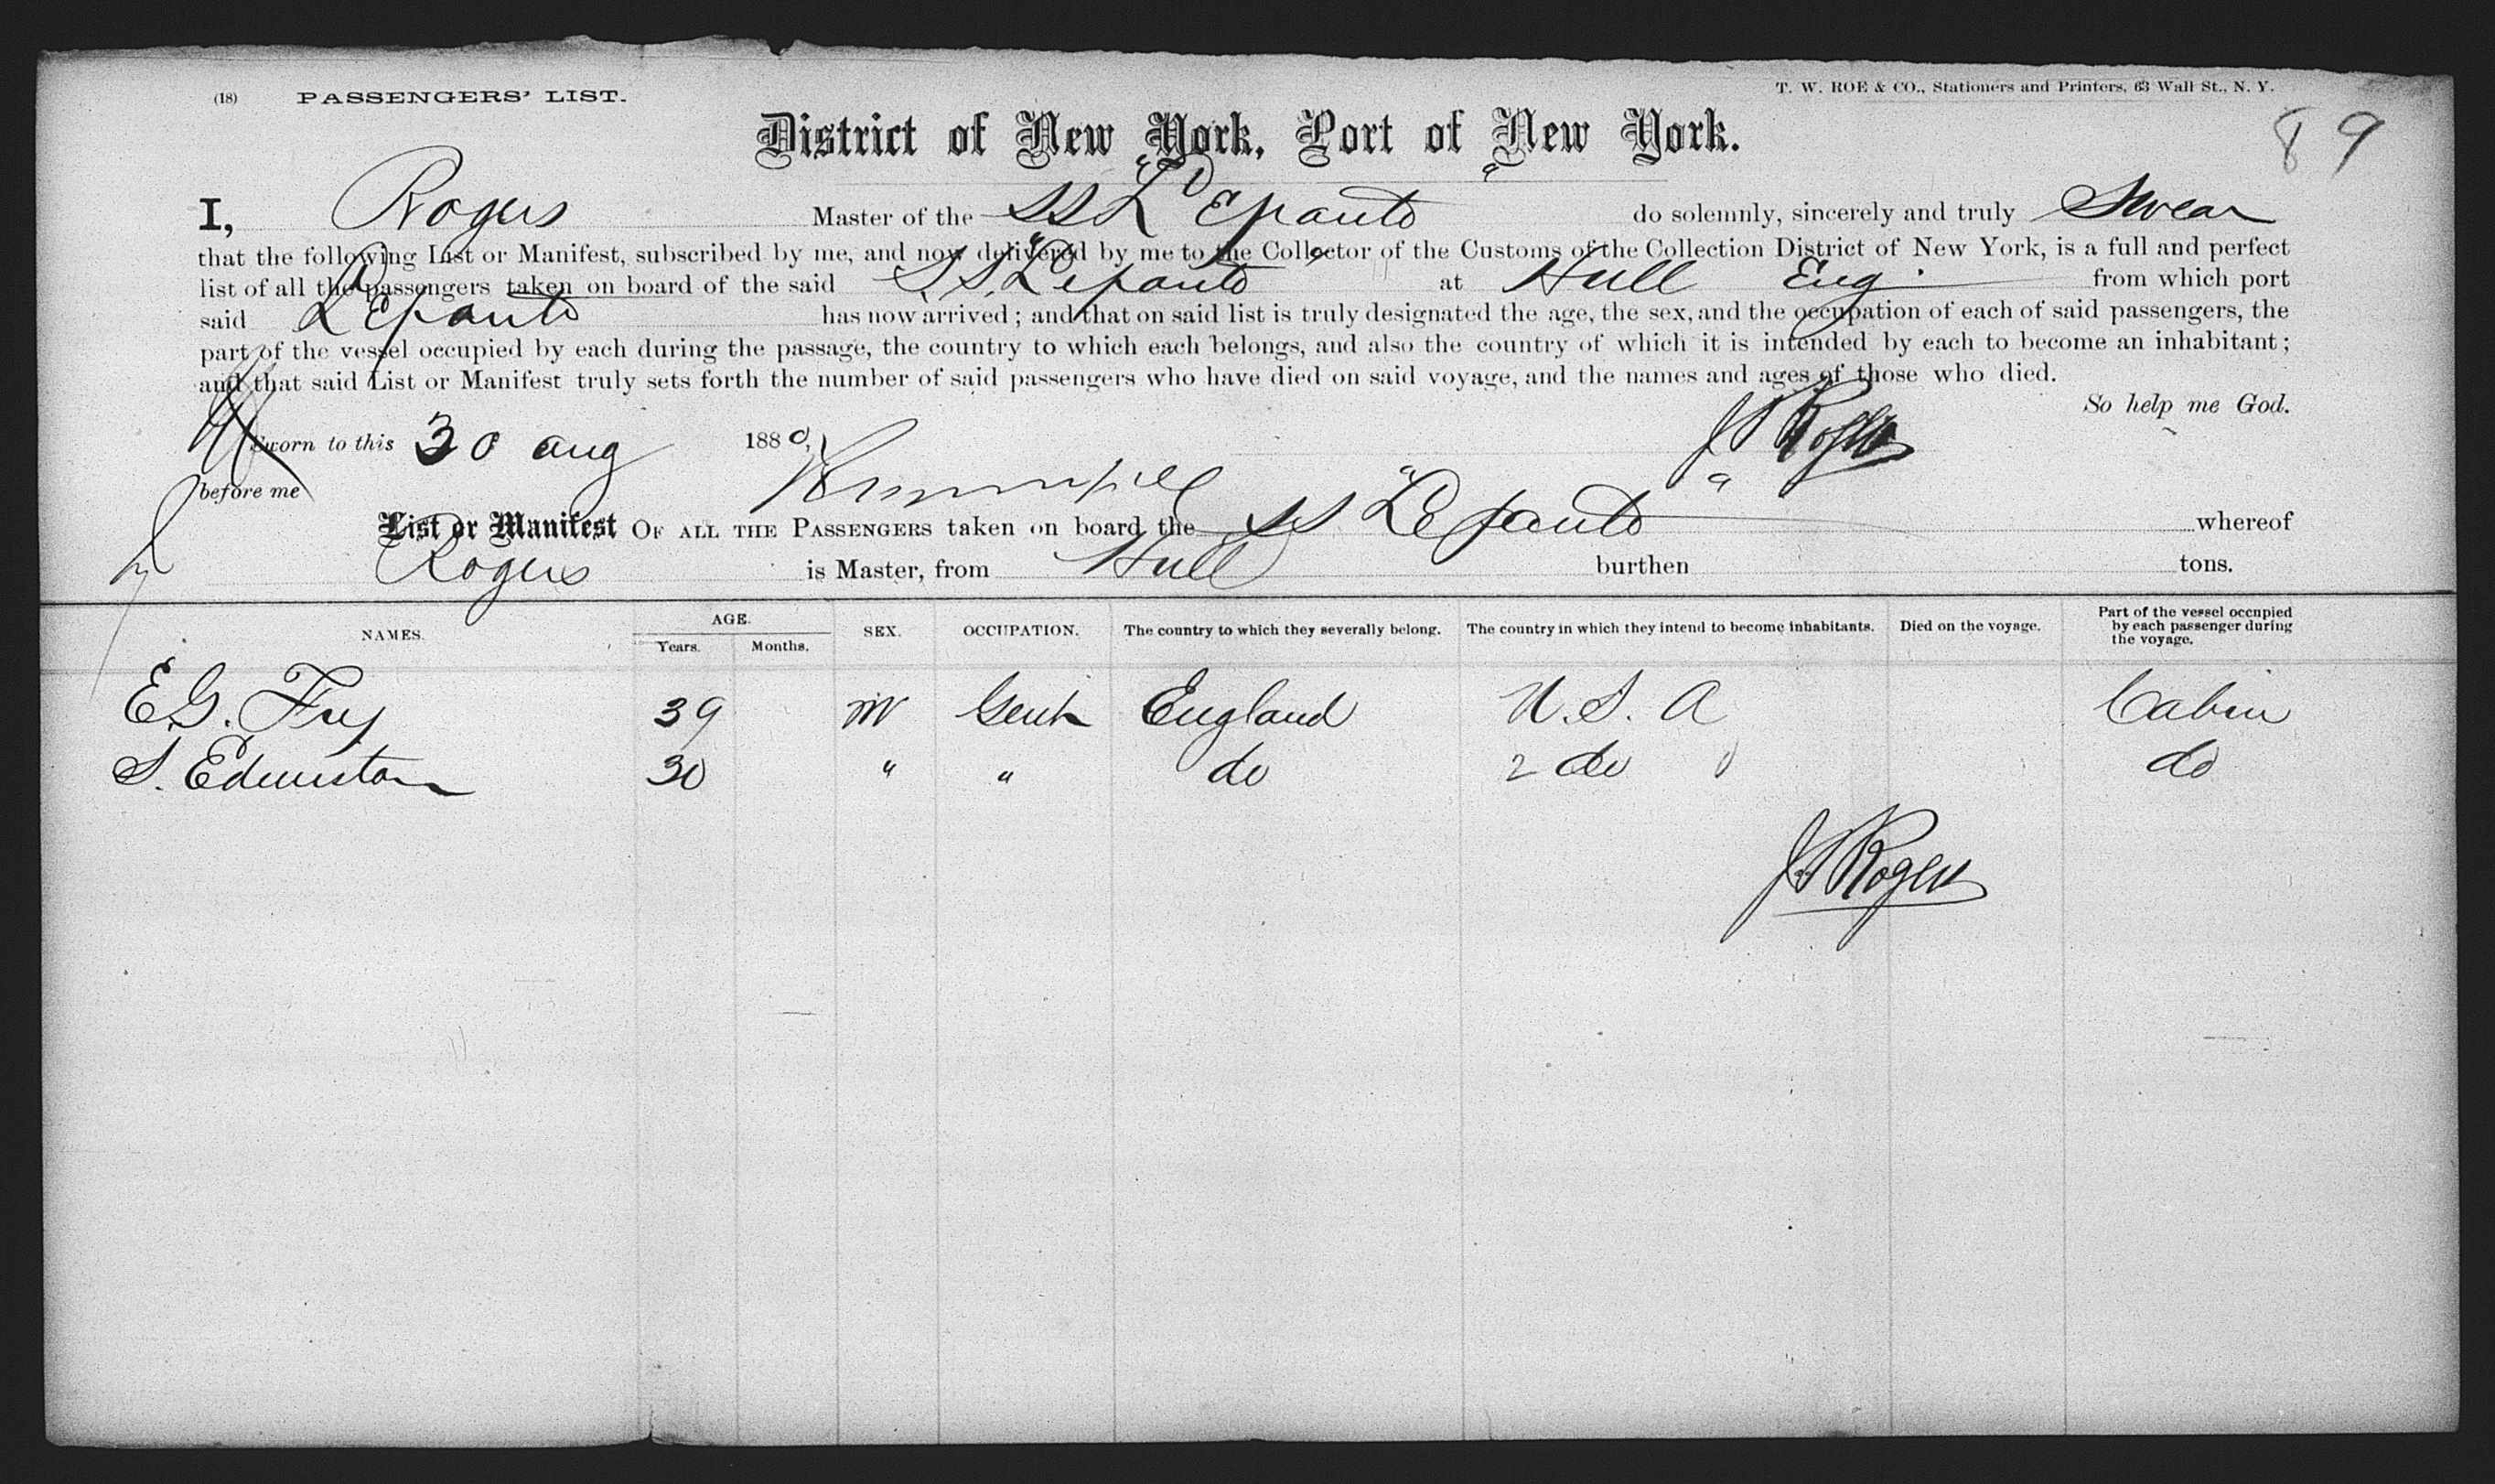 (18) PASSENGERS' LIST.
T. W. ROE & CO., Stationers and Printers, 63 Wall St., N. Y.
89
District of New York, Port of New York.
I, Rogers Master of the SS "Lepanto" do solemnly, sincerely and truly Swear
that the following List or Manifest, subscribed by me, and now delivered by me to the Collector of the Customs of the Collection District of New York, is a full and perfect
list of all the passengers taken on board of the said S.S. "Lepanto" at Hull Eng. from which port
said Lepanto has now arrived; and that on said list is truly designated the age, the sex, and the occupation of each of said passengers, the
part of the vessel occupied by each during the passage, the country to which each belongs, and also the country of which it is intended by each to become an inhabitant;
and that said List or Manifest truly sets forth the number of said passengers who have died on said voyage, and the names and ages of those who died.
So help me God.
Sworn to this 30 aug 1880, J S Rogers
before me
List or Manifest OF ALL THE PASSENGERS taken on board the SS "Lepanto" whereof
Rogers is Master, from Hull burthen tons.
NAMES. AGE. Years. Months. SEX. OCCUPATION. The country to which they severally belong. The country in which they intend to become inhabitants. Died on the voyage. Part of the vessel occupied by each passenger during the voyage.
E.G. Fry 39 M Gent England U.S. A Cabin
S. Edmiston 30 " " do 2 do do
J S Rogers